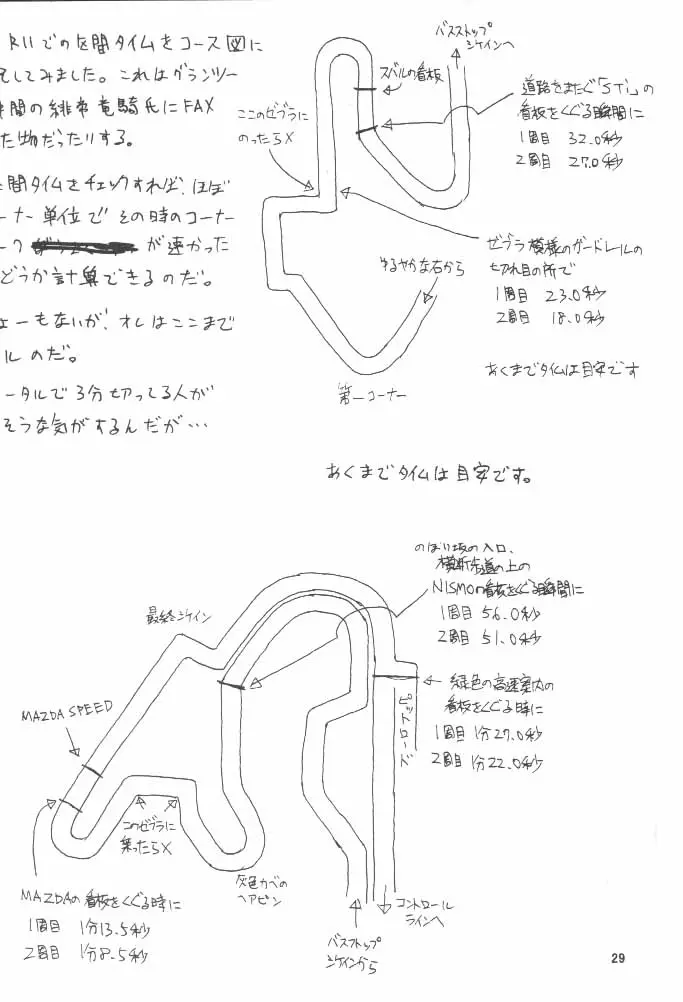 R11での区間タイムをコース図に
してみました。これはグランツー
仲間の緋帝竜騎氏にFAX
た物だったりする。
間タイムをチェックすれば、ほぼ
ーナー単位でその時のコーナー
が速かった
どうか計算できるのだ。
ょーもないが、オレはここまで
ルのだ。
ータルで3分切ってる人が
そうな気がするんだが…
バスストップ
シケインへ
スバルの看板
道路をまたぐ「STi」の
看板をくぐる瞬間に
1周目 32.0秒
2周目 27.0秒
ここのゼブラに
のったら×
ゼブラ模様のガードレールの
切れ目の所で
1周目 23.0秒
2周目 18.0秒
ゆるやかな右から
第一コーナー
あくまでタイムは目安です
あくまでタイムは目安です。
のぼり坂の入口、
横断歩道の上の
NISMOの看板をくぐる瞬間に
1周目 56.0秒
2周目 51.0秒
最終シケイン
緑色の高速案内の
看板をくぐる時に
1周目 1分27.0秒
2周目 1分22.0秒
ピットロード
MAZDA SPEED
このゼブラに
乗ったら×
灰色カベの
ヘアピン
MAZDAの看板をくぐる時に
1周目 1分13.5秒
2周目 1分8.5秒
コントロール
ラインへ
バスストップ
シケインから
29